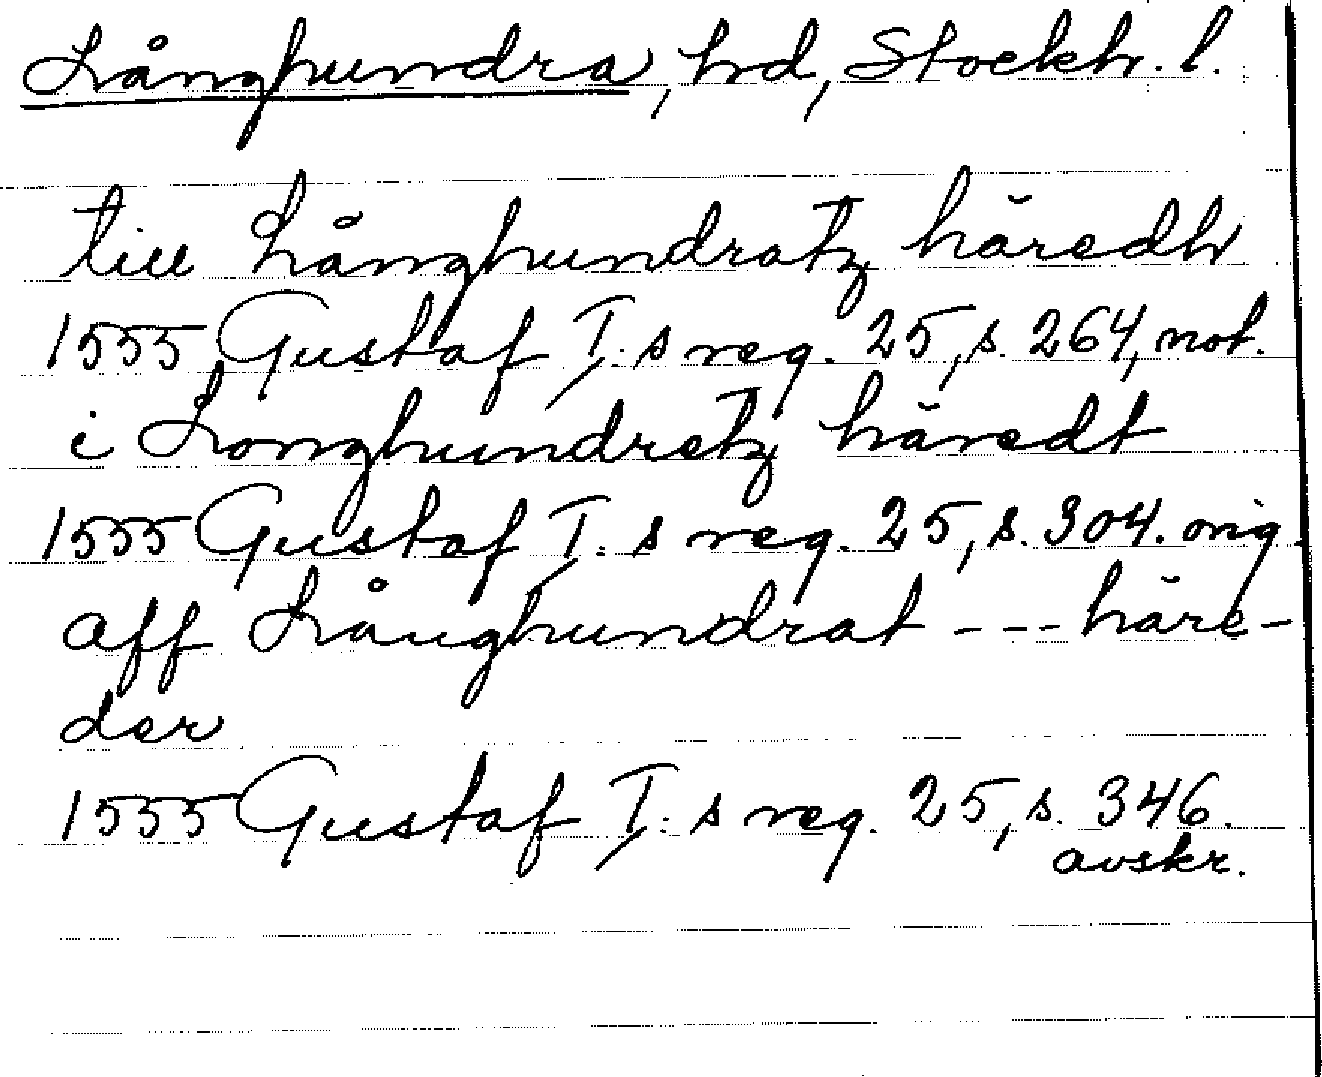 Långhundra, hd, Stockh. l.
till Långhundratz häredh
1555 Gustaf I:s reg. 25, s. 264, not.
i Longhundretz häredt
1555 Gustaf I:s reg. 25, s. 304. orig.
aff Långhundrat --- häre-
der
1555 Gustaf I:s reg. 25, s. 346.
avskr.